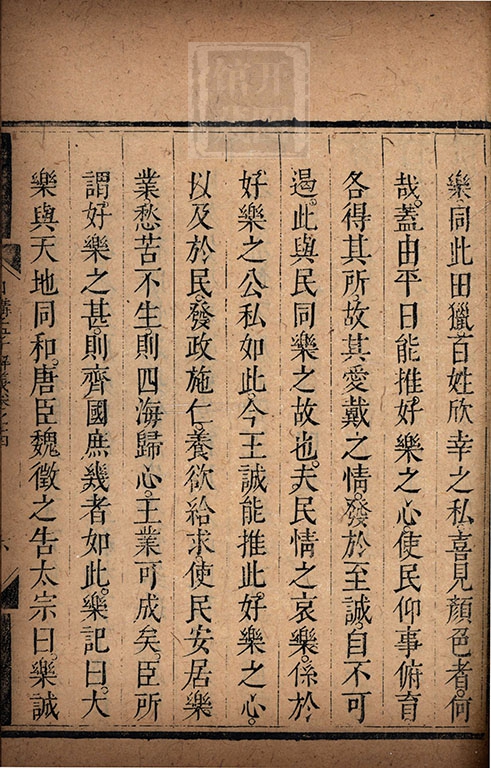 樂同此田獵百姓欣幸之私喜見顏色者何
哉蓋由平日能推好樂之心使民仰事俯育
各得其所故其愛戴之情發於至誠自不可
遏此與民同樂之故也夫民情之哀樂係於
好樂之公私如此今王誠能推此好樂之心
以及於民發政施仁養欲給求使民安居樂
業愁苦不生則四海歸心王業可成矣臣所
謂好樂之甚則齊國庶幾者如此樂記曰大
樂與天地同和唐臣魏徵之告太宗曰樂誠